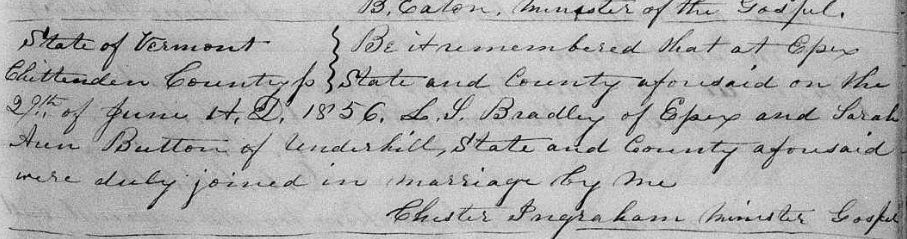 B. Eaton, Minister of the Gospel.
State of Vermont } Be it remembered that at Essex
Chittenden County ss } State and County aforesaid on the
29th of June A.D. 1856. L. S. Bradley of Essex and Sarah
Ann Button of Underhill, State and County aforesaid
were duly joined in marriage by me
Chester Ingraham Minister Gospel